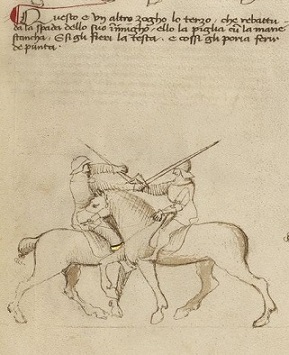 Questo e un altro zogho lo terzo, che rebattu-
da la spada dello suo inimigho, ello la piglia cum la mane
stancha. E si gli fieri la testa. e cossi gli poria ferir
de punta.